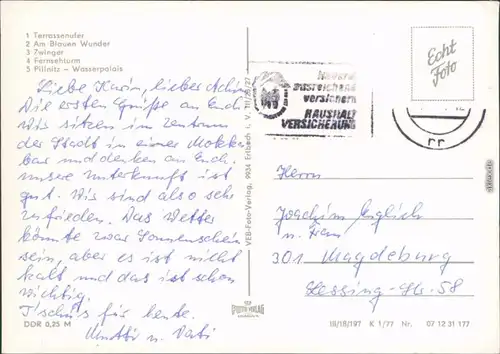 1 Terrassenufer
2 Am Blauen Wunder
3 Zwinger
4 Fernsehturm
5 Pillnitz – Wasserpalais
Liebe Karin, lieber Achim
Die ersten Grüße an Euch
Wir sitzen im Zentrum
der Stadt in einer Mokka
bar und denken an Euch.
unsere Unterkunft ist
gut. Wir sind also sehr
zufrieden. Das Wetter
könnte zwar Sonnenschein
sein, aber es ist nicht
kalt und das ist schon
wichtig.
Tschüß für heute.
Mutti u. Vati
DDR 0,25 M
VEB-Foto-Verlag, 9934 Erlbach i. V.
ausreichend
versichern
HAUSHALT
VERSICHERUNG
Echt
Foto
Herrn
Joachim Englich
u. Frau
301 Magdeburg
Lessing-Str. 58
III/18/197 K 1/77 Nr. 07 12 31 177